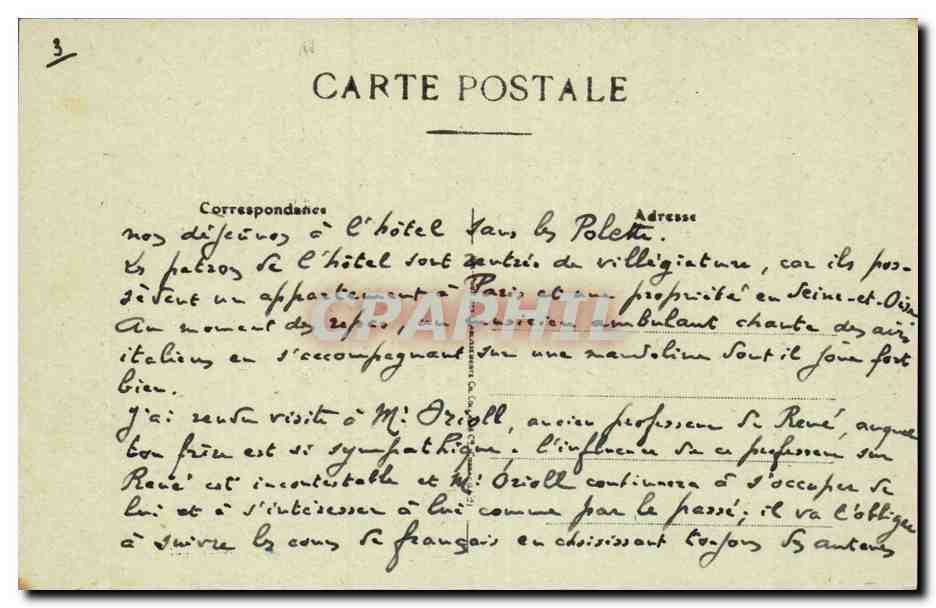 3
CARTE POSTALE
Correspondance
Adresse
nos déjeûnos à l'hôtel sans les Polette.
Les patrons de l'hôtel sont rentrés de villégiature, car ils pos-
sèdent un appartement à Paris et une propriété en Seine-et-Oise
Au moment des repas, un musicien ambulant chante des airs
italiens en s'accompagnant sur une mandoline dont il joue fort
bien.
J'ai rendu visite à Mr Orioll, ancien professeur de René, auquel
ton frère est si sympathique. l'influence de ce professeur sur
René est incontestable et Mr Orioll continuera à s'occuper de
lui et à s'intéresser à lui comme par le passé; il va l'obliger
à suivre les cours de français en choisissant toujours des auteurs
CPARHII